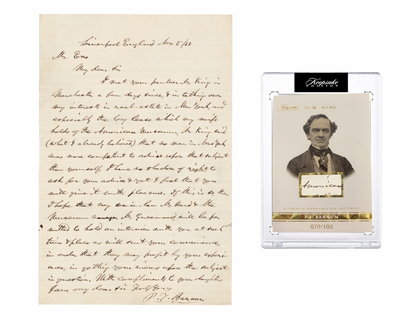 Liverpool England Nov 5/58
My dear Sir
I met your partner Mr King in
Manchester a few days since, & in talking over
my interests in real estate in New York, and
especially the long lease which my wife
holds of the American Museum, Mr King said
(what I already believed) that no man in
was more competent to advise upon that subject
than yourself. I have no shadow of right to
ask for your advice & yet I feel that you
will give it with pleasure. If this is so then
I hope that my son in law Mr Hurd & the
Museum manager Mr Greenwood will be per
mitted to hold an interview with you at such
time & place as will suit your convenience,
in order that they may profit by your experi
ence, in getting your views upon the subject
in question. With compliments to your daughter
I am my dear Sir
P. T. Barnum
Keepsake
EDITION
American
P.T. BARNUM
079/100